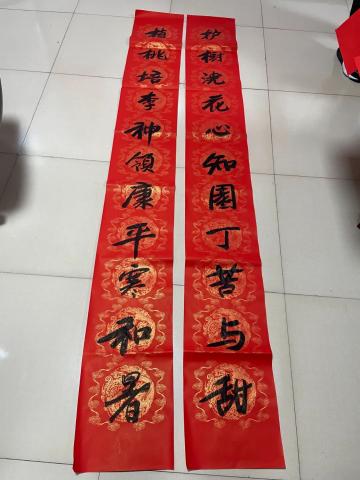 护樹浇花心知園丁苦与甜
植桃培李神領康平寒和暑